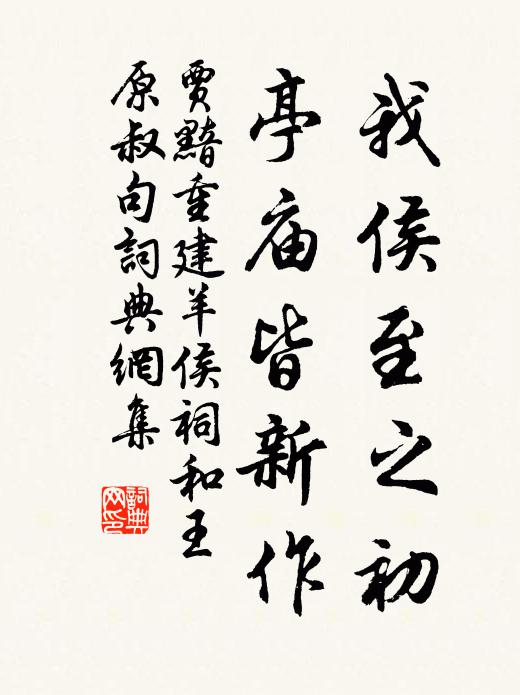 我侯至之初
亭庙皆新作
賈黯重建羊侯祠和王
原叔句詞典網集
詞典
网印